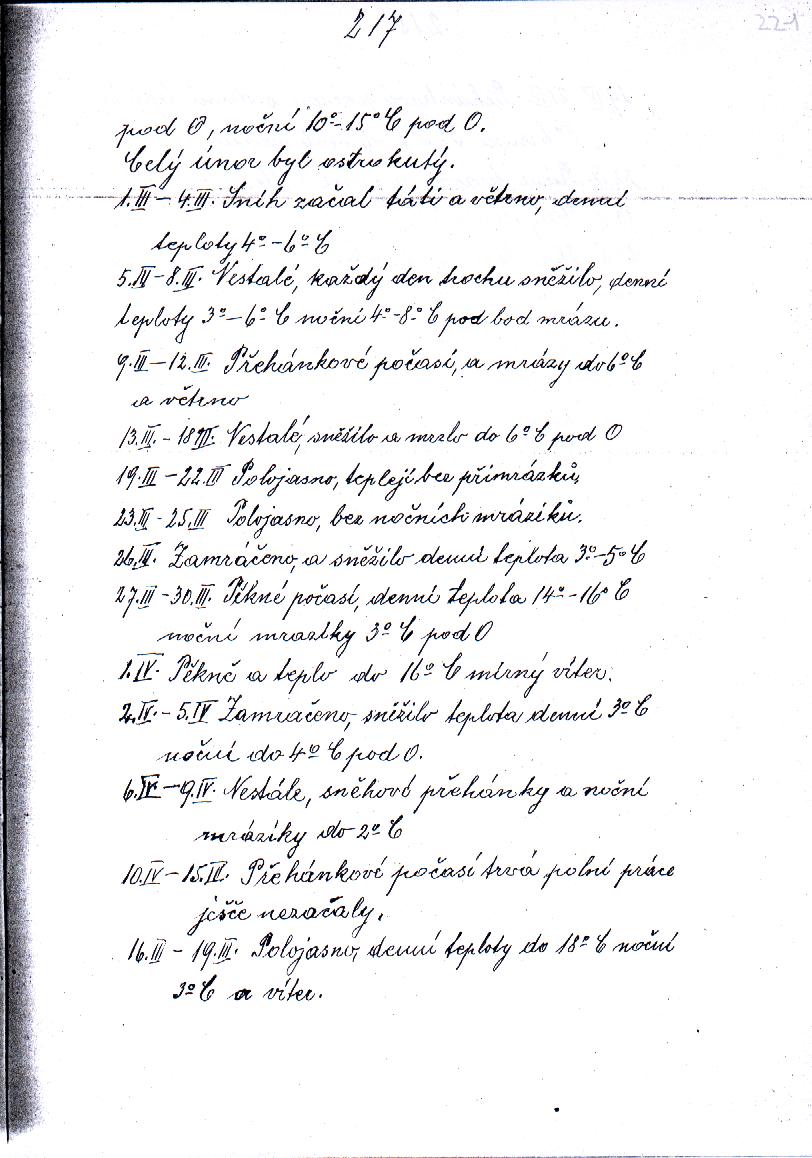 217
221
pod 0, noční 10º-15º C pod 0.
Celý únor byl ostrokutý.
1.III - 4.III. Sníh začal táti a větrno, denní
teploty 4º - 6º C
5.III - 8.III. Nestalé, každý den trochu sněžilo, denní
teploty 3º - 6º C noční 4º-8º C pod bod mrázu.
9.III - 12.III. Přehánkové počasí, a mrázy do 6º C
a větrno
13.III. - 18III. Nestalé, sněžilo a mrzlo do 6º C pod 0
19.III - 22.III Polojasno, teplejí bez přímrázků,
23.III - 25.III Polojasno, bez nočních mrázíků.
26.III. Zamráčeno, a sněžilo denní teplota 3º-5º C
27.III - 30.III. Pěkné počasí, denní teplota 14º - 16º C
noční mrazíky 3º C pod 0
1.IV. Pěkně a teplo do 16º C mírný víter.
2.IV. - 5.IV Zamračeno, sněžilo teplota denní 3º C
noční do 4º C pod 0.
6.IV - 9.IV. Nestále, sněhové přehánky a noční
mrázíky do 2º C
10.IV - 15.IV. Přehánkové počasí trvá polní práce
ješče nezačaly.
16.III - 19.III. Polojasno, denní teploty do 18º C noční
3º C a víter.